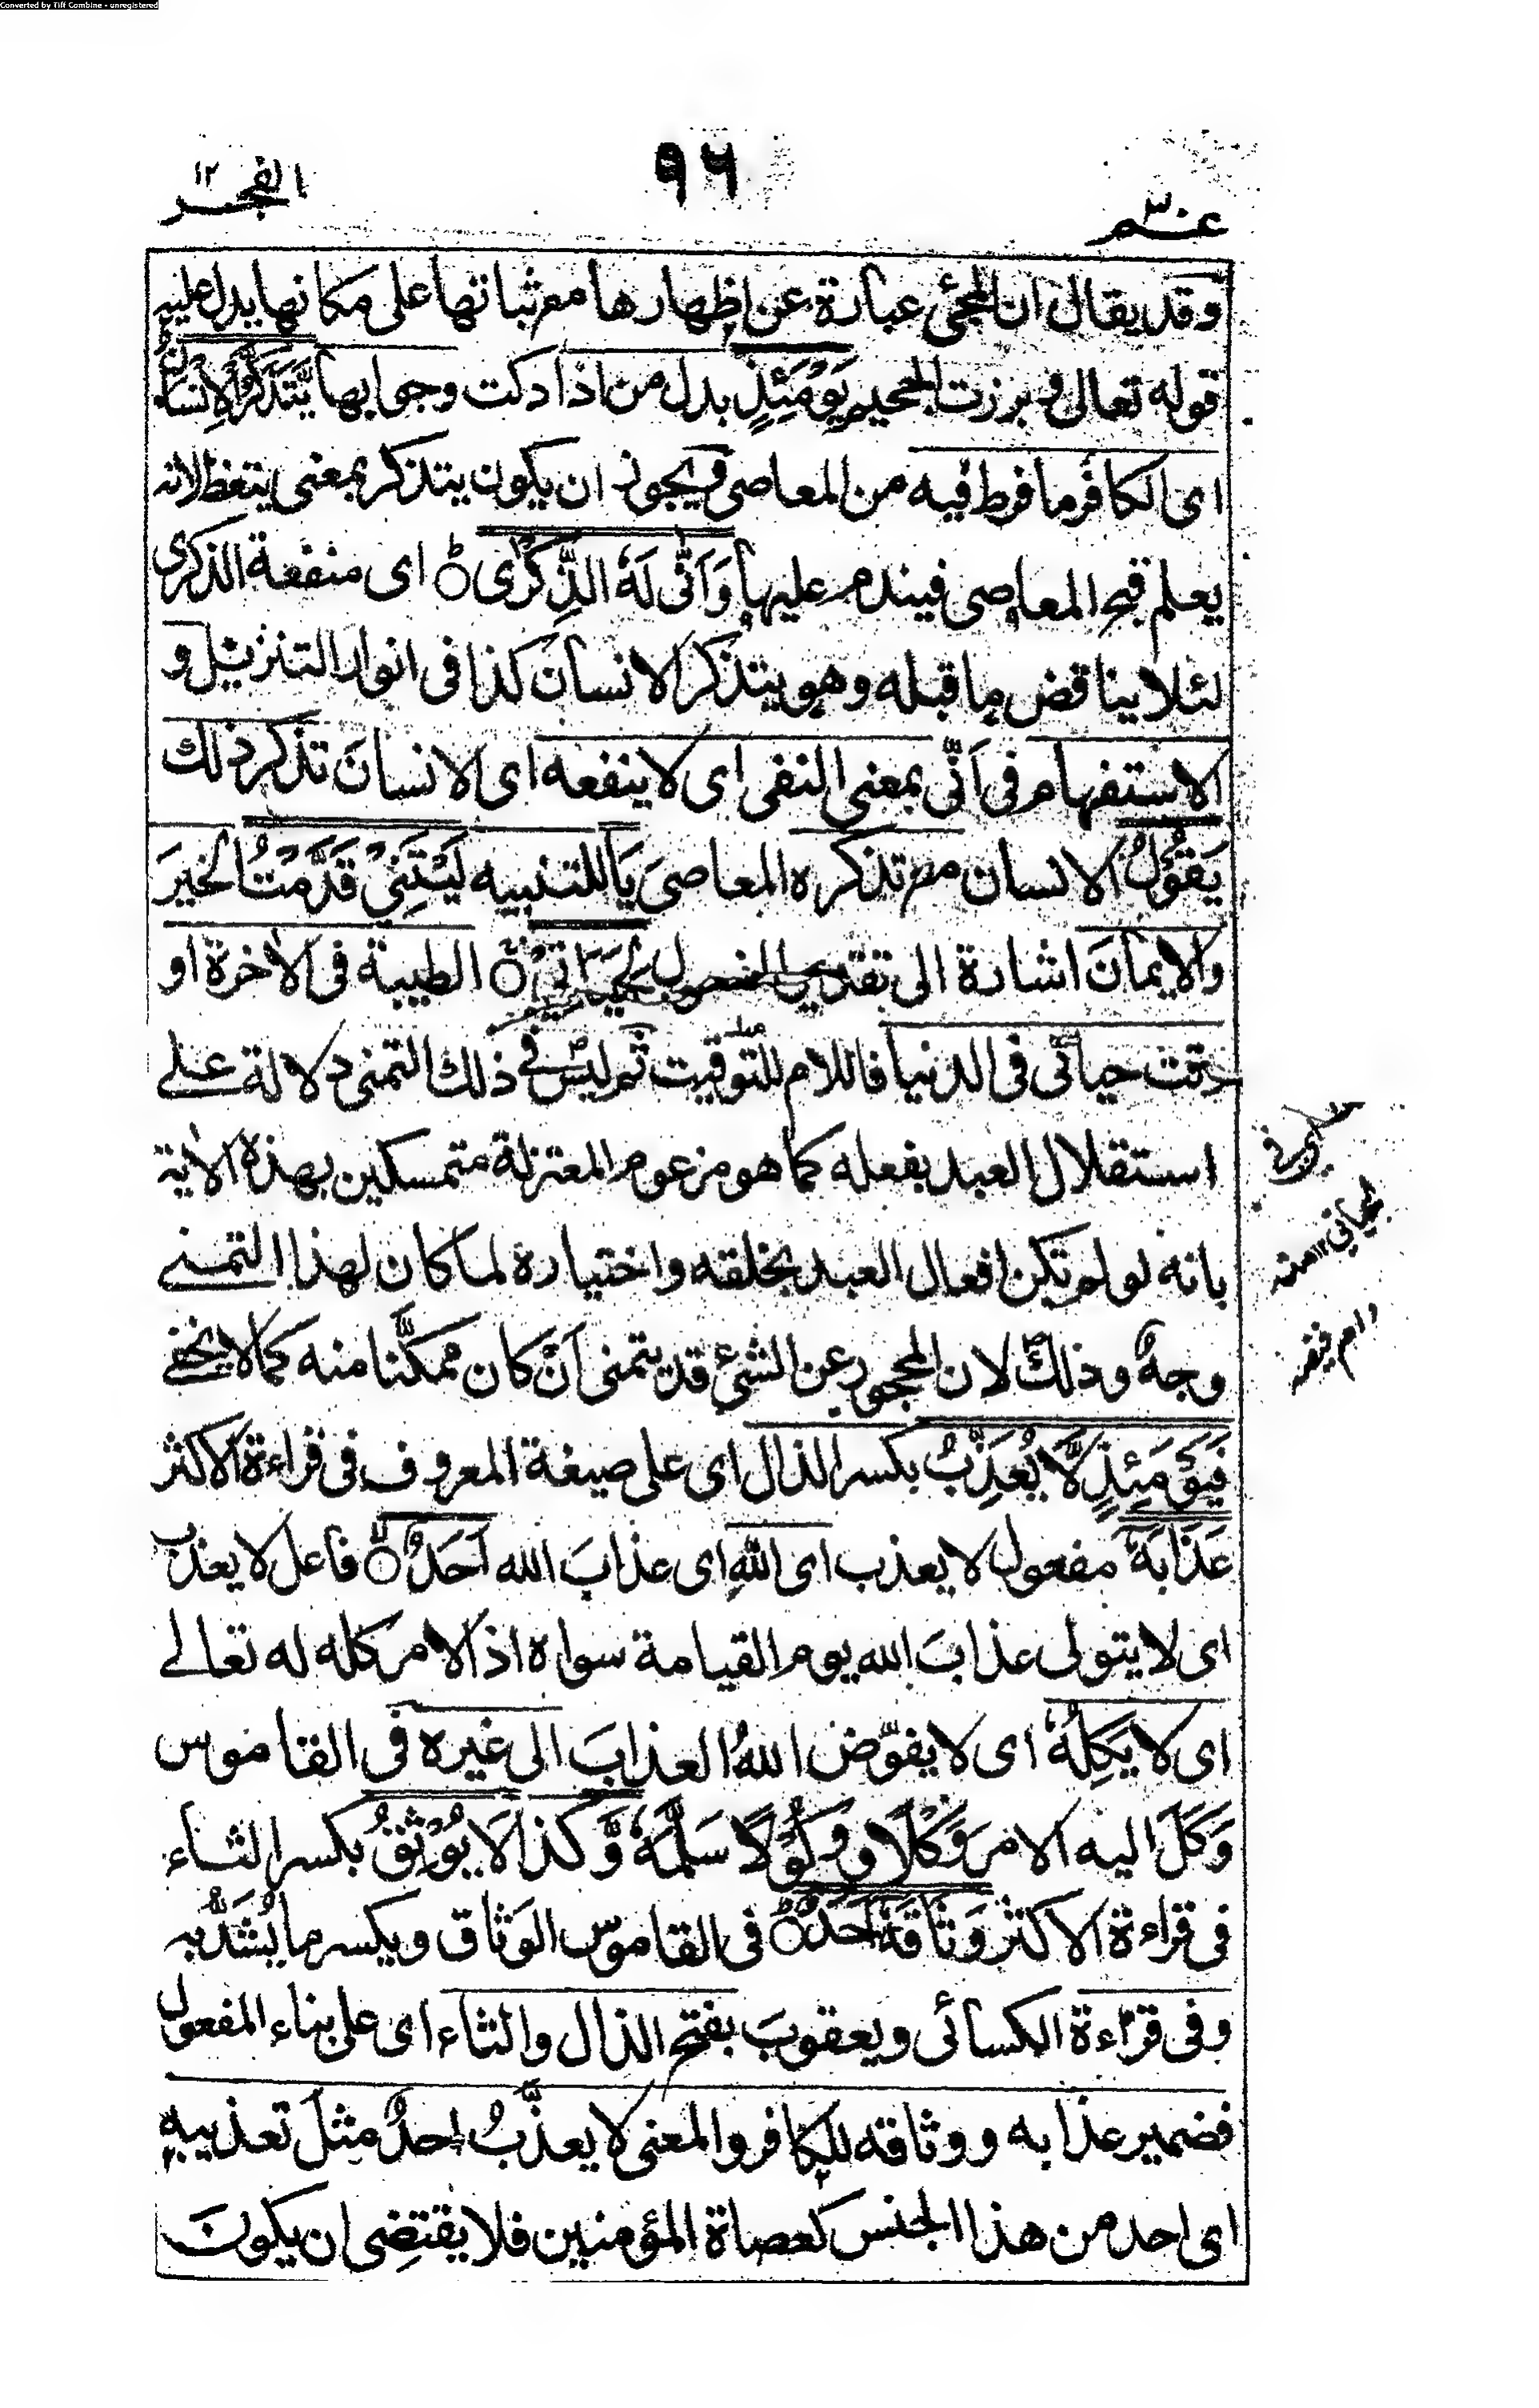 Converted by Tiff Combine - unregistered
عم ٣٠
٩٦
الفجر ١٢
وقد يقال ان المجئ عبارة عن اظهارها مع ثباتها على مكانها يدل عليه
قوله تعالى وبرزت الجحيم يَوْمَئِذٍ بدل من اذا دكت وجوابها يَّتَذَكَّرُ الْاِنْسَانُ
اى الكافرُ ما فرط فيه من المعاصى ويجوز ان يكون يتذكر بمعنى يتعظ لانه
يعلم قبح المعاصى فيندم عليها وَاَنّٰى لَهُ الذِّكْرٰى ۝ اى منفعة الذكرى
لئلا يناقض ما قبله وهو يتذكر الانسان كذا فى انوار التنزيل و
الاستفهام فى اَنّٰى بمعنى النفى اى لا ينفعه اى الانسانَ تذكر ذلك
يَقُوْلُ الانسان مع تذكره المعاصىَ يَا للتنبيه لَيْتَنِيْ قَدَّمْتُ الخيرَ
والايمانَ اشارة الى تقدير المفعول لِحَيَاتِيْ ۝ الطيبة فى الاخرة او
وقت حياتى فى الدنيا فاللام للتوقيت ثم ليس فے ذلك التمنى دلالة علے
استقلال العبد بفعله كما هو مزعوم المعتزلة متمسكين بهذه الاية
بانه لو لم تكن افعال العبد بخلقه واختياره لما كان لهذا التمنے
وجهٌ وذلك لان المحجور عن الشئ قد يتمنى اَنْ كان ممكَّنا منه كما لا يخفے
فَيَوْمَئِذٍ لَّا يُعَذِّبُ بكسر الذال اى على صيغة المعروف فى قراءة الاكثر
عَذَابَهٗ مفعول لا يعذب اى اللهِ اى عذابَ الله اَحَدٌ ۝ فاعل لا يعذب
اى لا يتولى عذابَ الله يوم القيامة سواه اذ الامر كله له تعالے
اى لا يَكِلُهٗ اى لا يفوّض اللهُ العذابَ الى غيره فى القاموس
وَكَلَ اليه الامرَ وَكْلًا ووُكُوْلًا سَلَّمَهٗ وَّكذا لَا يُوْثِقُ بكسر الثاء
فى قراءة الاكثر وَثَاقَهٗ اَحَدٌ ۝ فى القاموس الوَثاق ويكسر ما يُشَدُّ به
وفى قراءة الكسائى ويعقوبَ بفتح الذال والثاء اى على بناء المفعول
فضمير عذابه ووثاقه للكافر والمعنى لا يعذَّبُ احدٌ مثلَ تعذيبه
اى احد من هذا الجنس كعصاة المؤمنين فلا يقتضى ان يكونَ
لحياتى ١٢ منه